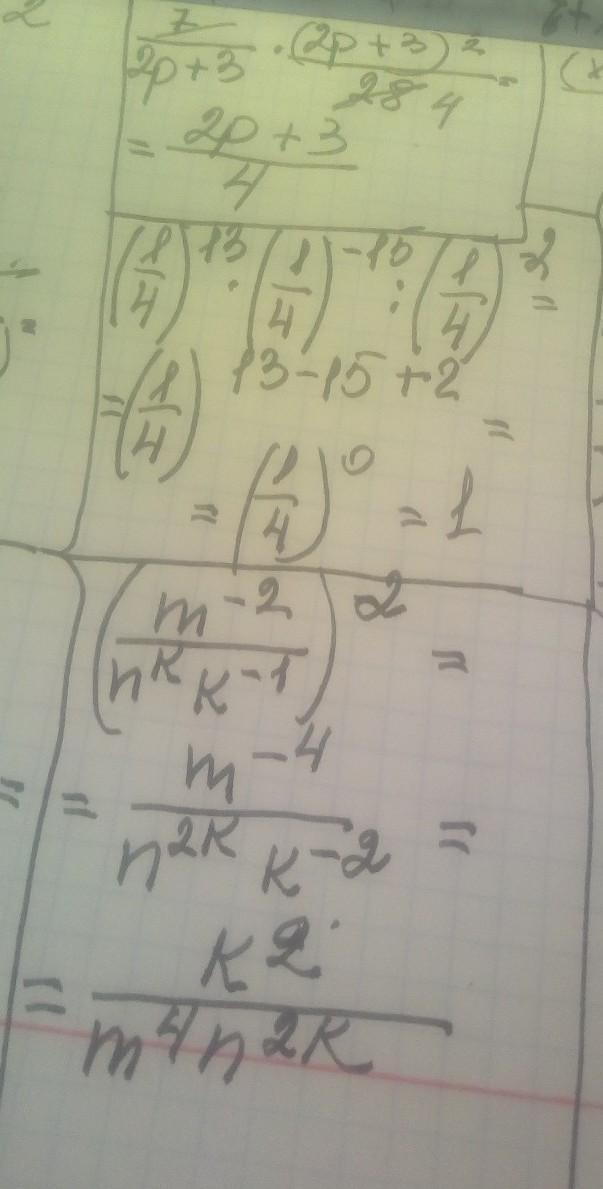 7/(2p+3) · (2p+3)²/28 4 =
= (2p+3)/4
(1/4)^13 · (1/4)^-15 : (1/4)^2 =
= (1/4)^13-15+2 =
= (1/4)^0 = 1
(m^-2/(n^k k^-1))^2 =
= m^-4/(n^2k k^-2) =
= k^2/(m^4 n^2k)